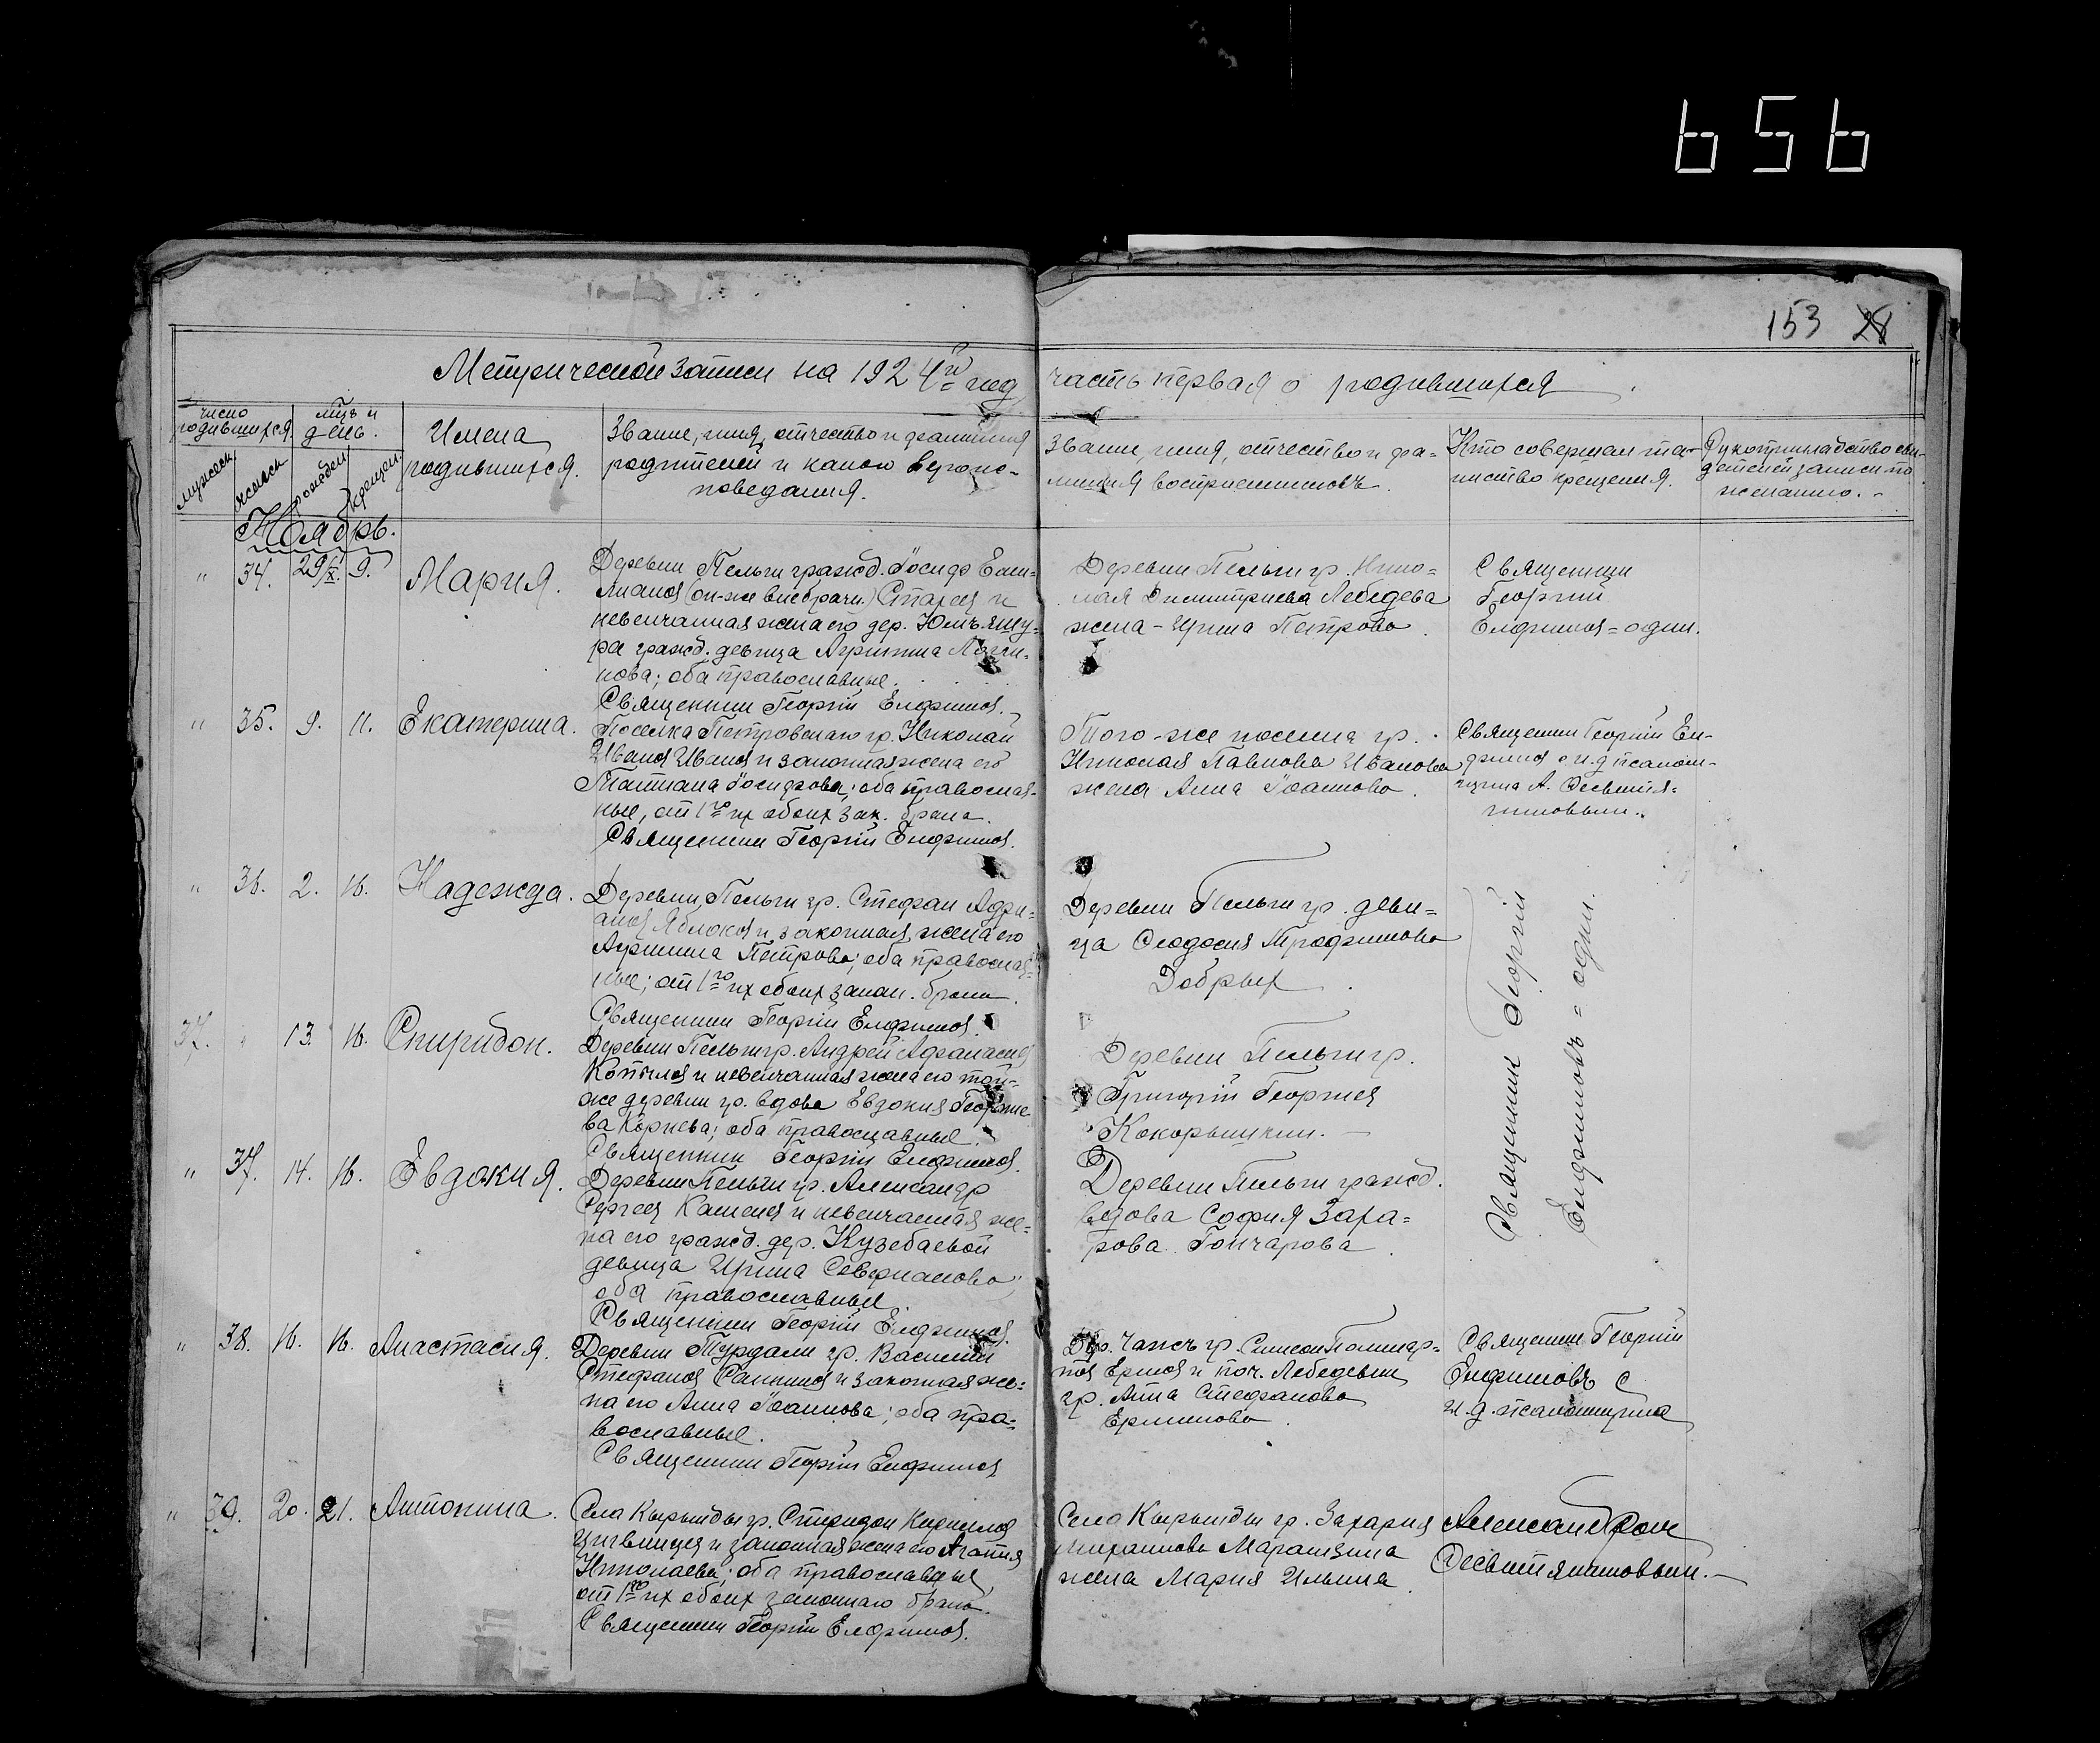 656
153 28
Метрической записи на 1924й год часть первая о родившихся
число родившихся.
мцъ и день.
Имена родившихся.
Звание, имя, отчество и фамилия
родителей и какого веропо-
ведания.
Звание, имя, отчество и фа-
милия восприемниковъ.
Кто совершал та-
инство крещения.
Рукоприкладство сви-
детелей записи по
желанию.
мужеск. женск. рожден. крещен.
Ноябрь.
" 34. 29/X. 9. Мария.
Деревни Пельги гражд. Iосиф Еми-
лианов (он-же внебрачн.)
невенчанная жена его дер. Юмъ-яшу-
ра гражд. девица Агрипина Логи-
нова; оба православные.
Священник Георгий Елфимов.
Деревни Пельги гр. Нико-
лая Димитриева Лебедева
жена - Ирина Петрова.
Священник
Георгий
Елфимов = один.
" 35. 9. 11. Екатерина.
Поселка Петровскаго гр. Николай
Иванов Иванов и законная жена его
Татиана Iосифова; оба православ-
ные, от 1го их обоих зак. брака.
Священник Георгий Елфимов.
Того-же поселка гр.
Николая Павлова Иванова
жена Анна Iоаннова.
Священник Георгий Ел-
фимов с и.д псалом-
щика А. Десвитя-
нниковым.
" 36. 2. 16. Надежда.
Деревни Пельги гр. Стефан Адри-
анов Яблоков и законная жена его
Агрипина Петрова; оба православ-
ные; от 1го их обоих закон. брака.
Священник Георгий Елфимов.
Деревни Пельги гр. деви-
ца Феодосия Трофимова
Добрых.
Священник Георгий
Елфимовъ = один.
37. " 13. 16. Спиридон.
Деревни Пельги гр. Андрей Афанасиев
Копылов и невенчанная жена его той-
же деревни гр. вдова Евдокия Георгие
ва Корнева; оба православные.
Священник Георгий Елфимов.
Деревни Пельги гр.
Григорий Георгиев
Кокорышкин.
" 37. 14. 16. Евдокия.
Деревни Пельги гр. Александр
Сергеев Калинин и невенчанная же-
на его гражд. дер. Кузебаевой
девица Ирина
оба православные.
Священник Георгий Елфимов.
Деревни Пельги гражд.
вдова София Заха-
рова Гончарова.
" 38. 16. 16. Анастасия.
Деревни Турдали гр. Василий
Стефанов Санников и законная же-
на его Анна Iоаннова; оба пра-
вославные.
Священник Георгий Елфимов
гр. Симеон
Ермов и поч. Лебедевки
гр. Анна Стефанова
Ермилова.
Священник Георгий
Елфимовъ с
и.д. псаломщика
Александром
Десвитянниковым.
" 39. 20. 21. Антонина.
Села Кырынды гр. Спиридон Кириллов
и законная жена его Агапия
Николаева; оба православные,
от 1го их обоих законнаго брака.
Священник Георгий Елфимов.
Села Кырынды гр. Захария
Марамзина
жена Мария Ильина.